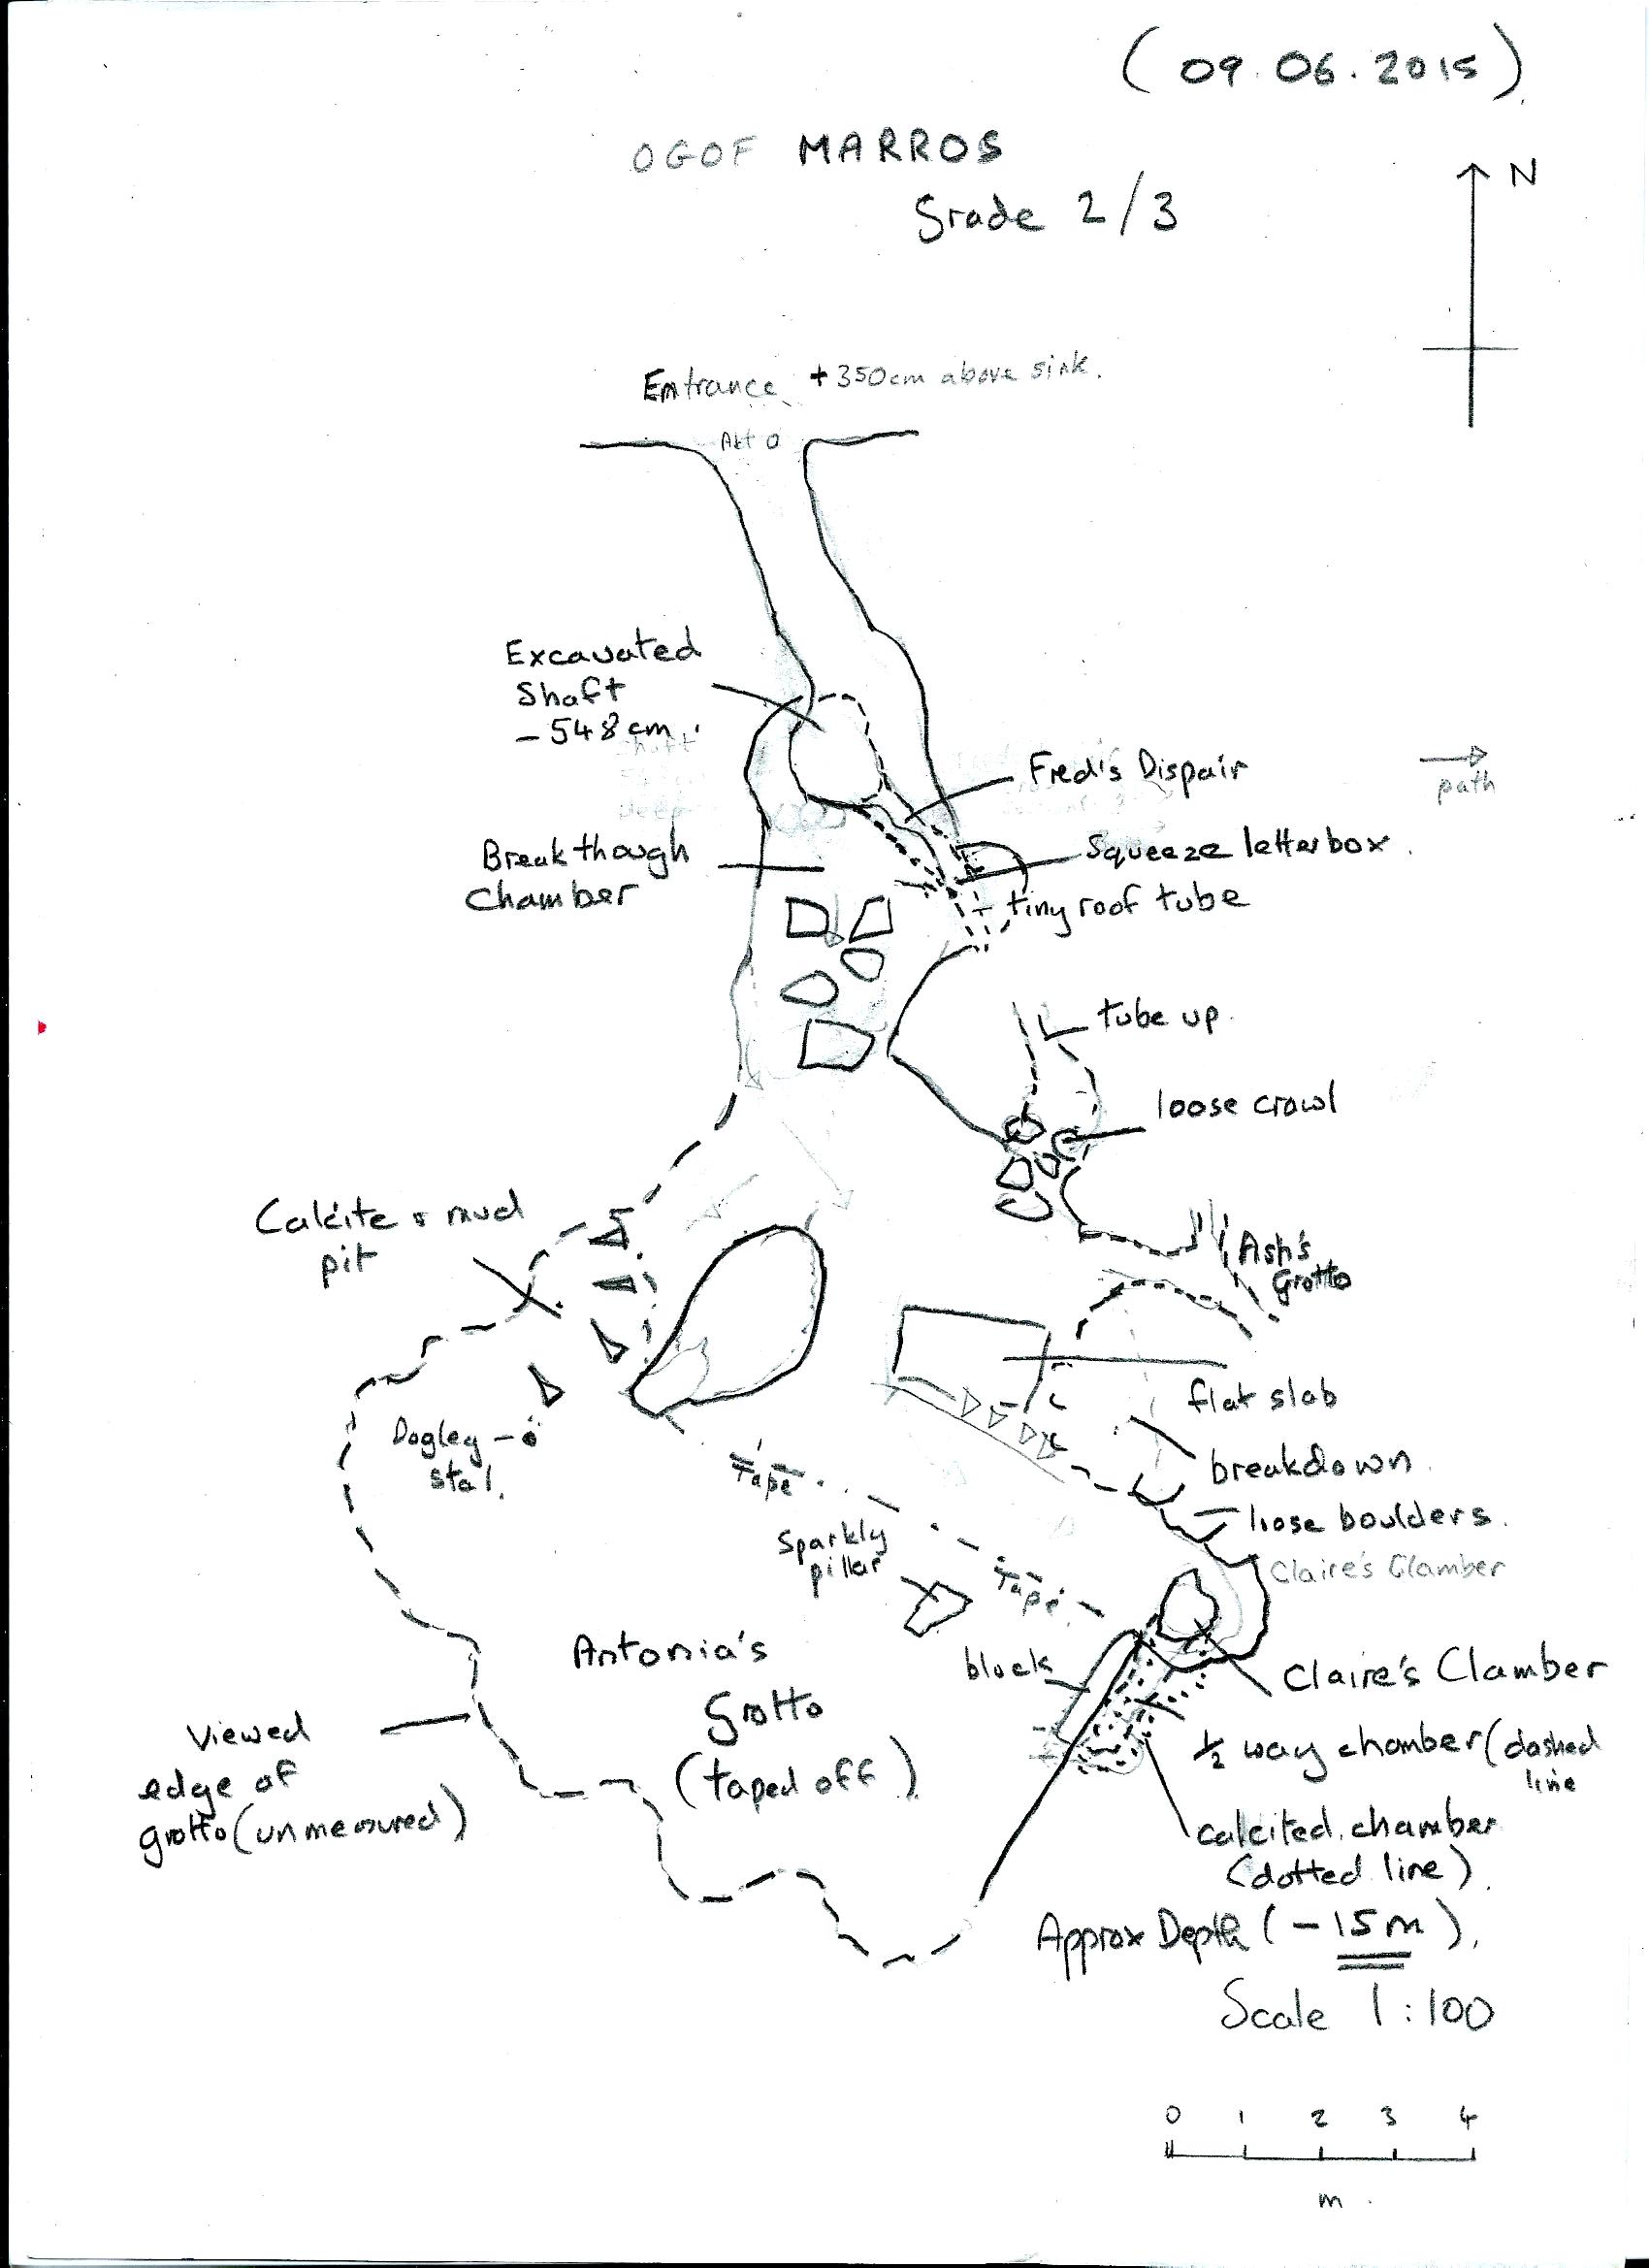 (09.06.2015)
OGOF MARROS
Grade 2/3
N
Entrance +350cm above sink.
Excavated
Shaft
-548cm.
Fred's Dispair
path
Squeeze letterbox.
Breakthough
Chamber
tiny roof tube
tube up.
loose crawl
Calcite & mud
pit
Ash's
Grotto
flat slab
Dogley
stal.
Tape
breakdown.
loose boulders.
Sparkly
pillar
Claire's Clamber
Tape
Antonia's
Grotto
(taped off)
block
Claire's Clamber
Viewed
edge of
grotto (unmeasured)
½ way chamber (dashed
line
calcited chamber
(dotted line).
Approx Depth (-15m).
Scale 1:100
0 1 2 3 4
m.